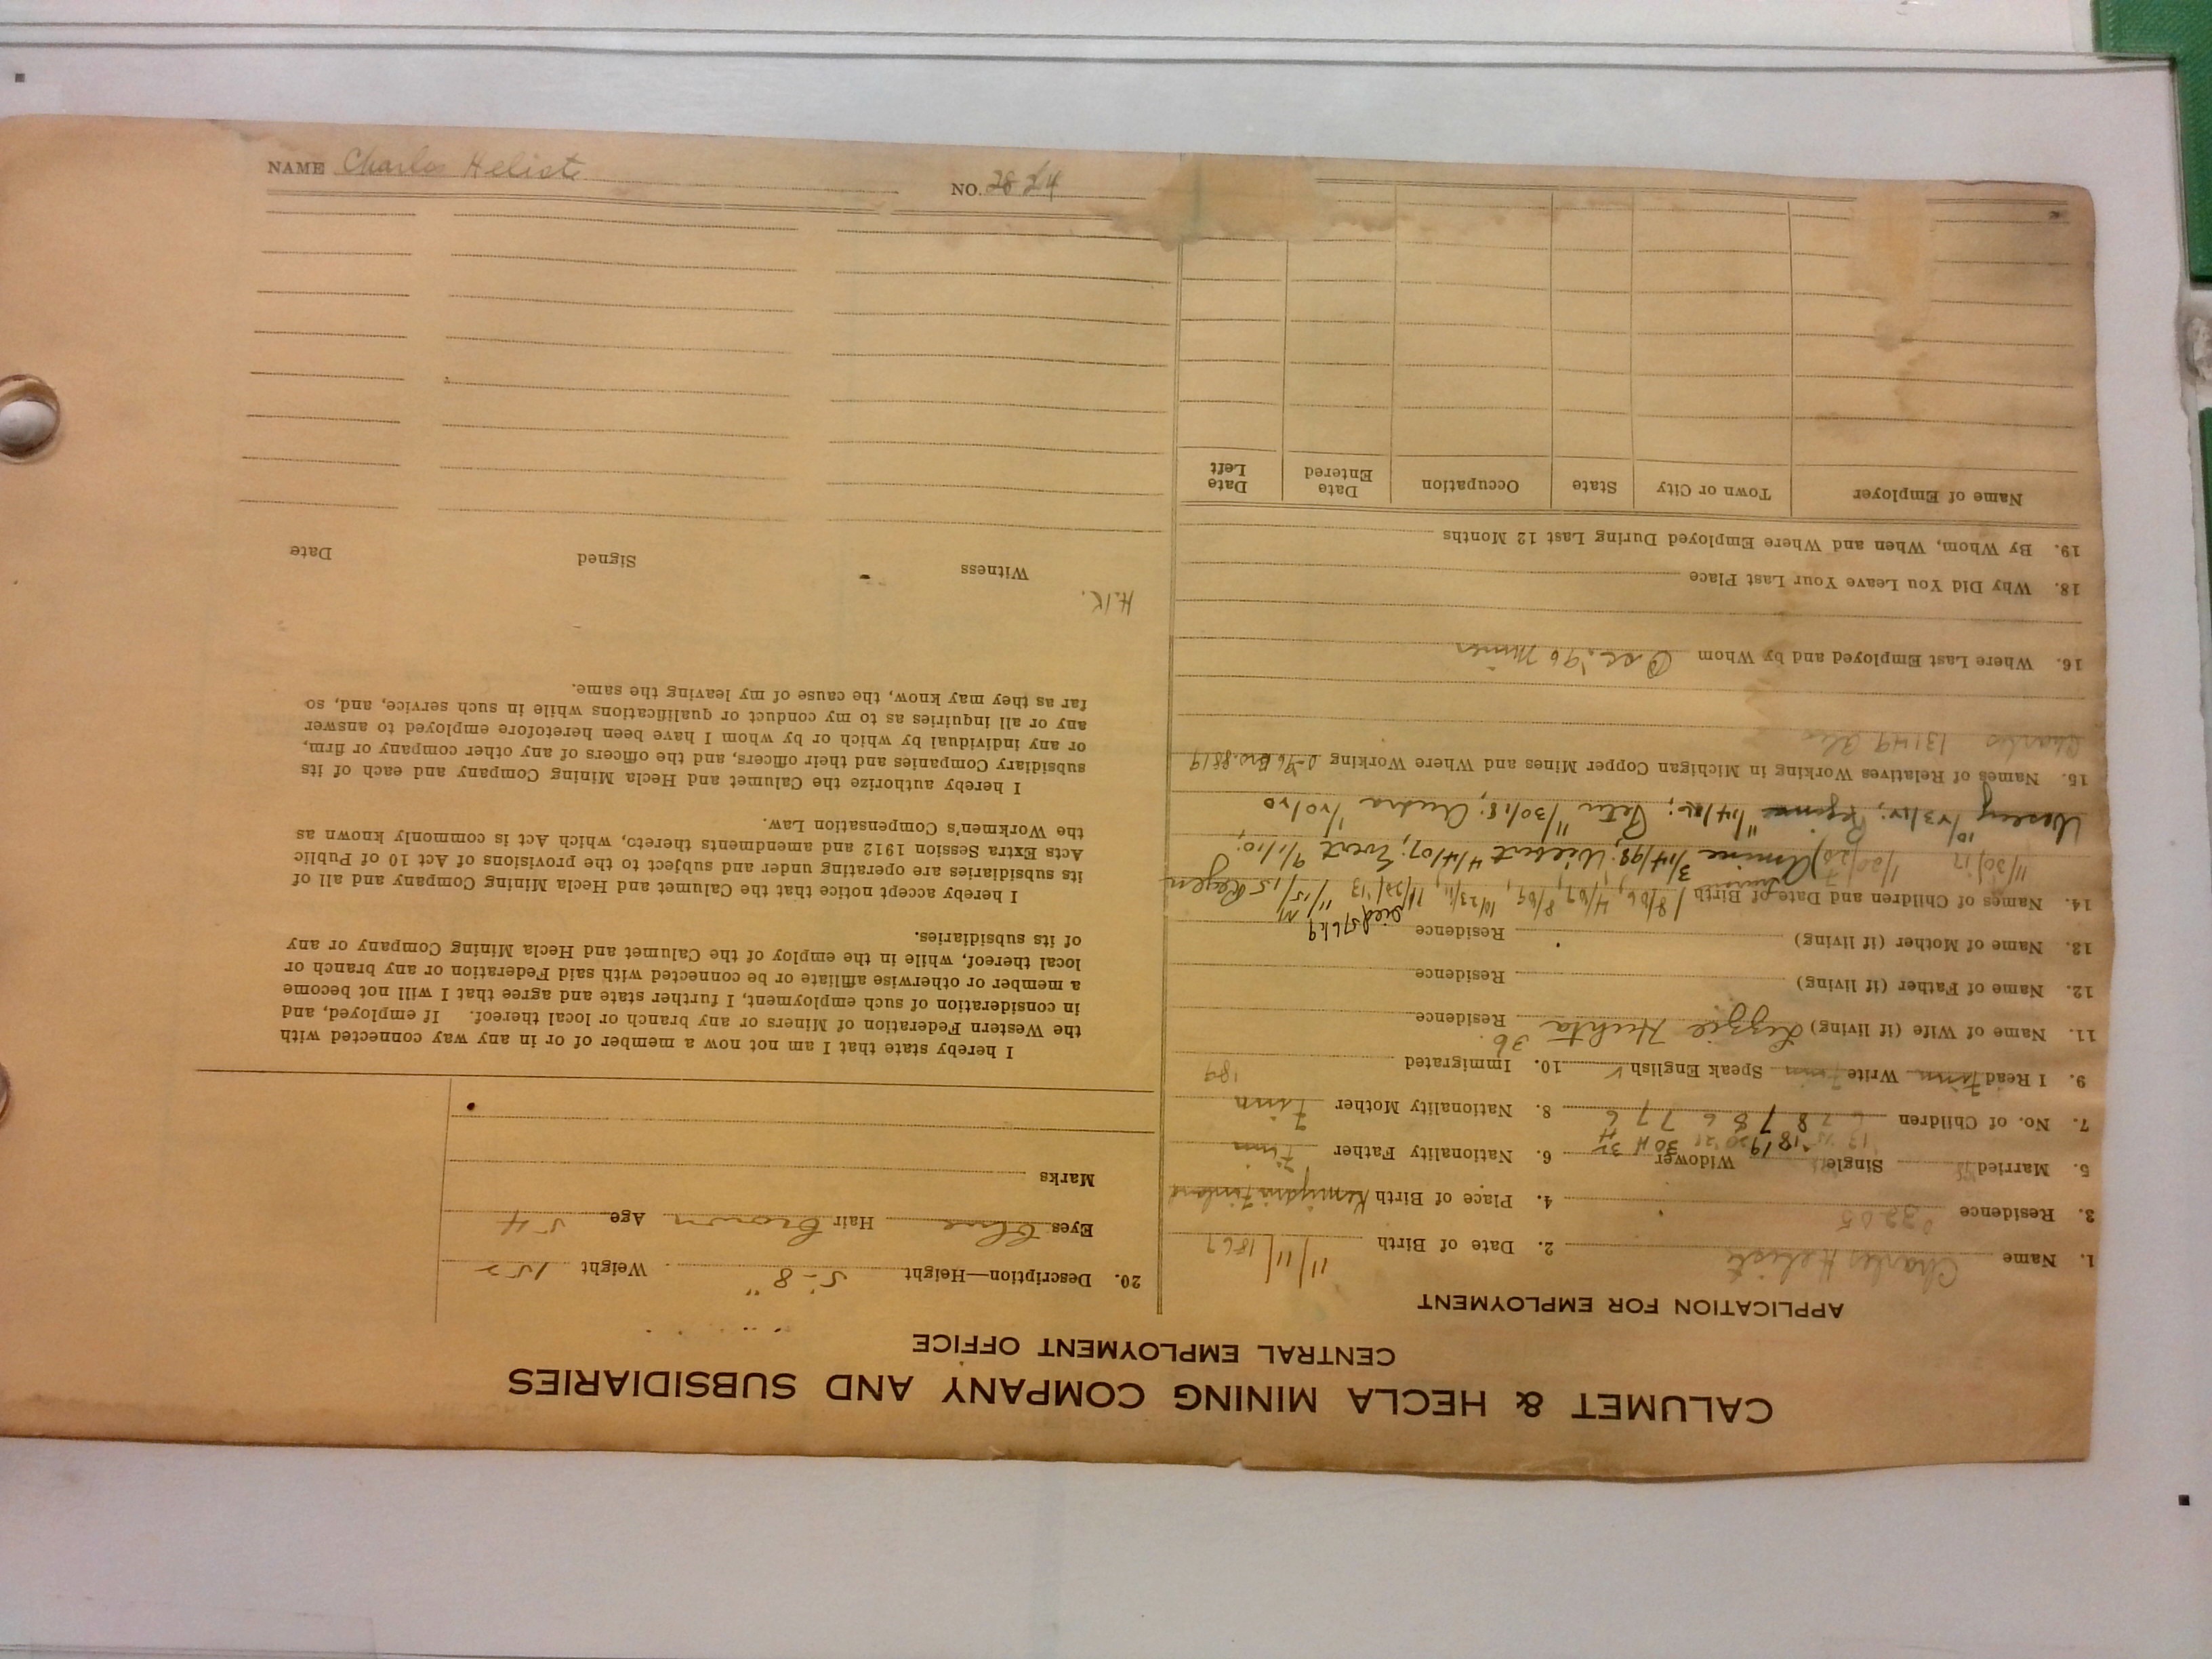 CALUMET & HECLA MINING COMPANY AND SUBSIDIARIES
CENTRAL EMPLOYMENT OFFICE
APPLICATION FOR EMPLOYMENT
1. Name Charles Heliste 2. Date of Birth 11/11/1869
3. Residence 3205 4. Place of Birth Finland
5. Married Single Widower 6. Nationality Father Finn
7. No. of Children 6 7 8 7 8 6 7 7 6 8. Nationality Mother Finn
9. I Read Finn Write Finn Speak English 10. Immigrated 189
36
11. Name of Wife (if living) Lizzie Huhta Residence
12. Name of Father (if living) Residence
13. Name of Mother (if living) Residence
14. Names of Children and Date of Birth
Amine 3/14/98; Wilbert 4/4/07; Event 9/1/10;
11/14/ ; 11/30/18; 1/20/20
15. Names of Relatives Working in Michigan Copper Mines and Where Working Bro. 8819
Charles 13149
16. Where Last Employed and by Whom '96 Miner
18. Why Did You Leave Your Last Place
19. By Whom, When and Where Employed During Last 12 Months
Name of Employer Town or City State Occupation Date Entered Date Left
20. Description—Height 5-8" Weight 152
Eyes Blue Hair Brown Age 54
Marks
I hereby state that I am not now a member of or in any way connected with
the Western Federation of Miners or any branch or local thereof. If employed, and
in consideration of such employment, I further state and agree that I will not become
a member or otherwise affiliate or be connected with said Federation or any branch or
local thereof, while in the employ of the Calumet and Hecla Mining Company or any
of its subsidiaries.
I hereby accept notice that the Calumet and Hecla Mining Company and all of
its subsidiaries are operating under and subject to the provisions of Act 10 of Public
Acts Extra Session 1912 and amendments thereto, which Act is commonly known as
the Workmen's Compensation Law.
I hereby authorize the Calumet and Hecla Mining Company and each of its
subsidiary Companies and their officers, and the officers of any other company or firm,
or any individual by which or by whom I have been heretofore employed to answer
any or all inquiries as to my conduct or qualifications while in such service, and, so
far as they may know, the cause of my leaving the same.
H.K.
Witness Signed Date
NAME Charles Heliste NO. 2824